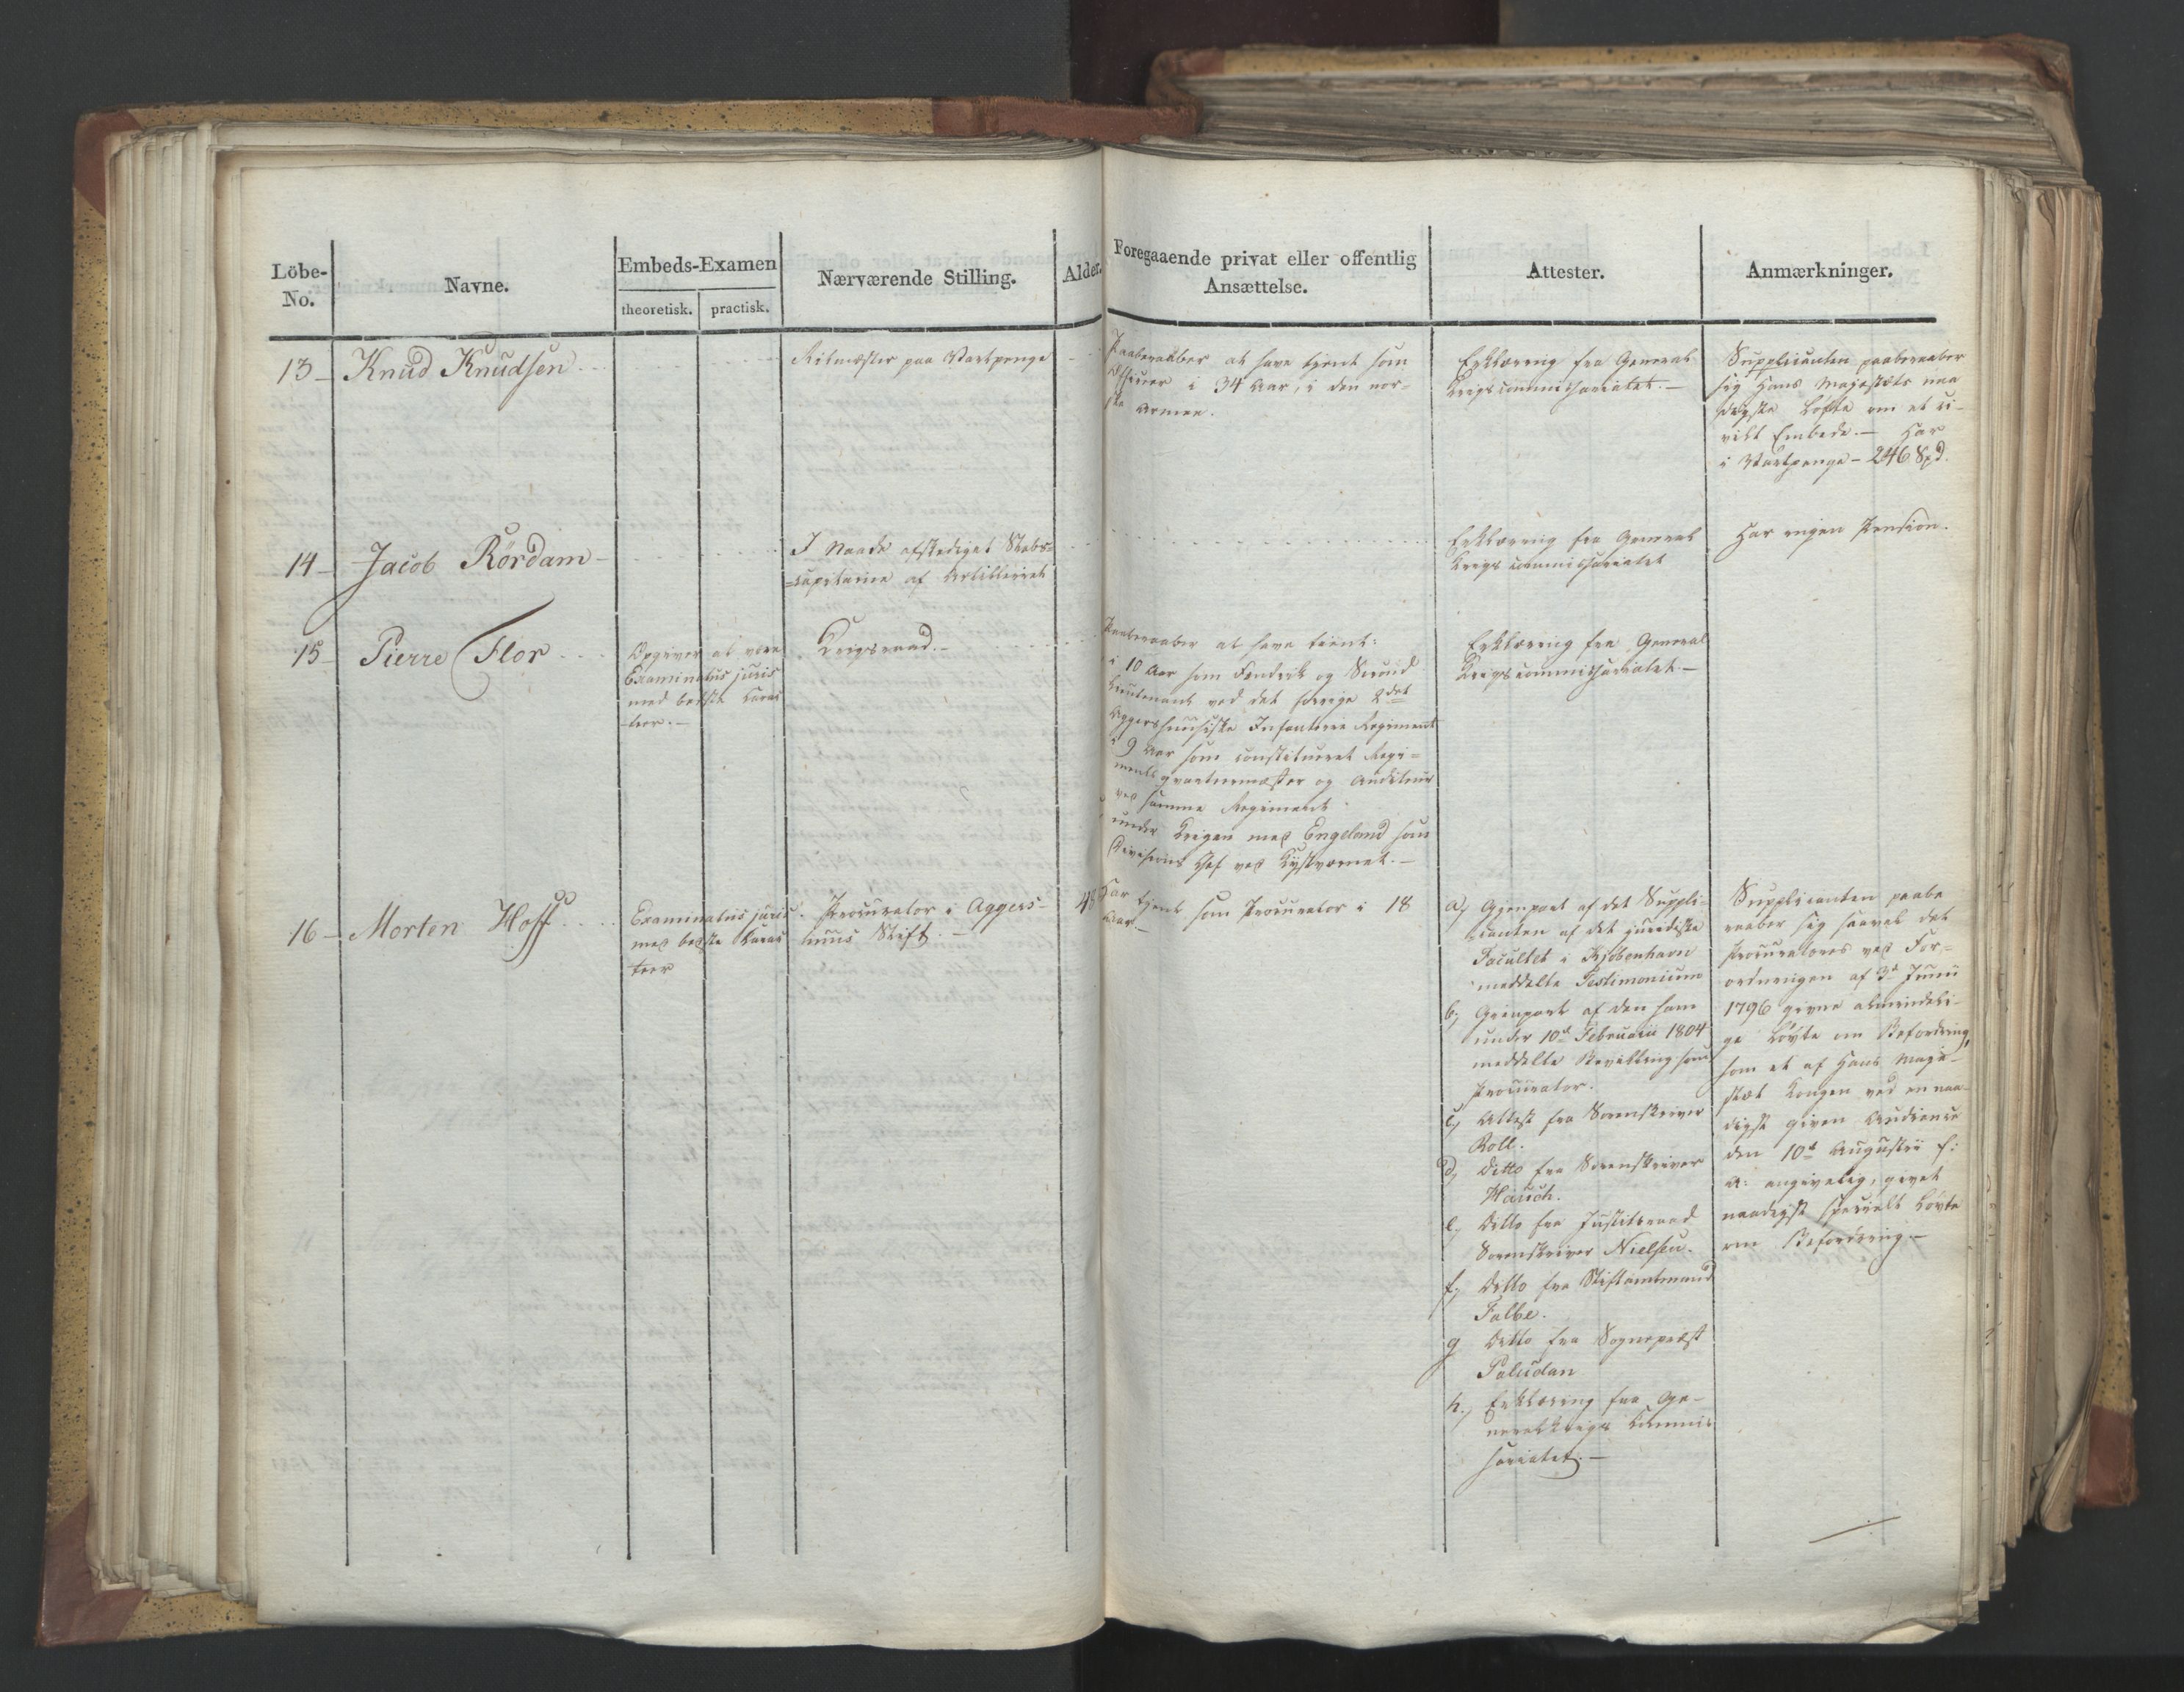 Löbe-
No.
Navne.
Embeds-Examen
theoretisk. practisk.
Nærværende Stilling.
Alder.
Foregaaende privat eller offentlig
Ansættelse.
Attester.
Anmærkninger.
13 Knud Knudsen
Ritmester paa Vartpenge
Paaberaaber at have tjent som
Officeer i 34 Aar, i den nor-
ske Armee.
Erklæring fra General
Krigscommissariatet.
Supplicanten paaberaaber
sig Hans Majestæts naa
digste Løfte om et ci-
vilt Embede. Har
i Vartpenge - 246 Spd.
14 Jacob Rördam
I Naade afskediget Stabs=
=capitaine af Artilleriet
Erklæring fra General
Krigscommissariatet
Har ingen Pension.
15 Pierre Flor
Opgiver at være
Examinatus juris
med bedste Charac
-teer.
Krigsraad.
Paaberaaber at have tient:
i 10 Aar som Fendrik og Second
Lieutenant ved det forrige 2det
Aggershuusiske Infanterie Regiment
i 9 Aar som constitueret Regi=
mentsqvarteermester og Auditeur
ved samme Regiment
under Krigen med Engeland som
Divisions Chef ved Kystværnet.
Erklæring fra General
Krigscommissariatet.
16 Morten Hoff
Examinatus juris
med bedste Charac
teer
Procurator i Aggers-
huus Stift.
Har tjent som Procurator i 18
Aar.
a) Gjenpart af det Suppli-
canten af det juridiske
Facultet i Kjøbenhavn
meddelte Testimonium
b) Gienpart af den ham
under 10d Februarii 1804
meddelte Bevilling som
Procurator.
c) Attest fra Sorenskriver
Roll.
d) Ditto fra Sorenskriver
Hausch.
e) Ditto fra Justitsraad
Sorenskriver Nielsen.
f) Ditto fra Stiftamtmand
Falbe.
g Ditto fra Sognepræst
Paludan
h. Erklæring fra Ge-
neralkrigs Commis
sariatet.
Supplicanten paabe
raaber sig saavel det
Procuratorer ved For=
ordningen af 3d Junii
1796 givne almindeli-
ge Løvte om Befordring,
som et af Hans Maje-
stæt Kongen ved en naa-
digst given Audience
den 10d Augustii f:
A: angivelig, givet
naadigst specielt Løvte
om Befordring.